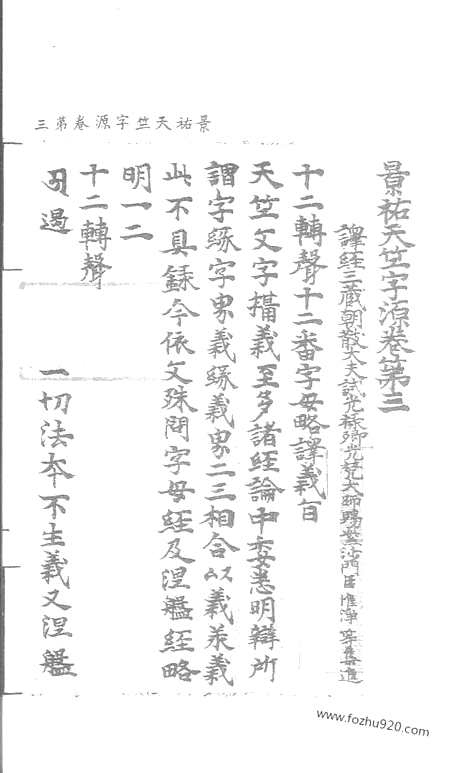 景祐天竺字源卷第三
景祐天竺字源卷第三
譯經三藏朝散大夫試光祿卿光梵大師賜紫沙門臣惟淨等集進
十二轉聲十二番字母略譯義首
天竺文字攝義至多諸經論中委悉明辯所
謂字緣字界義緣義界二三相合以義求義
此不具錄今依文殊問字母經及涅盤經略
明一二
十二轉聲
遏 一切法本不生義又涅盤
www.fozhu920.com